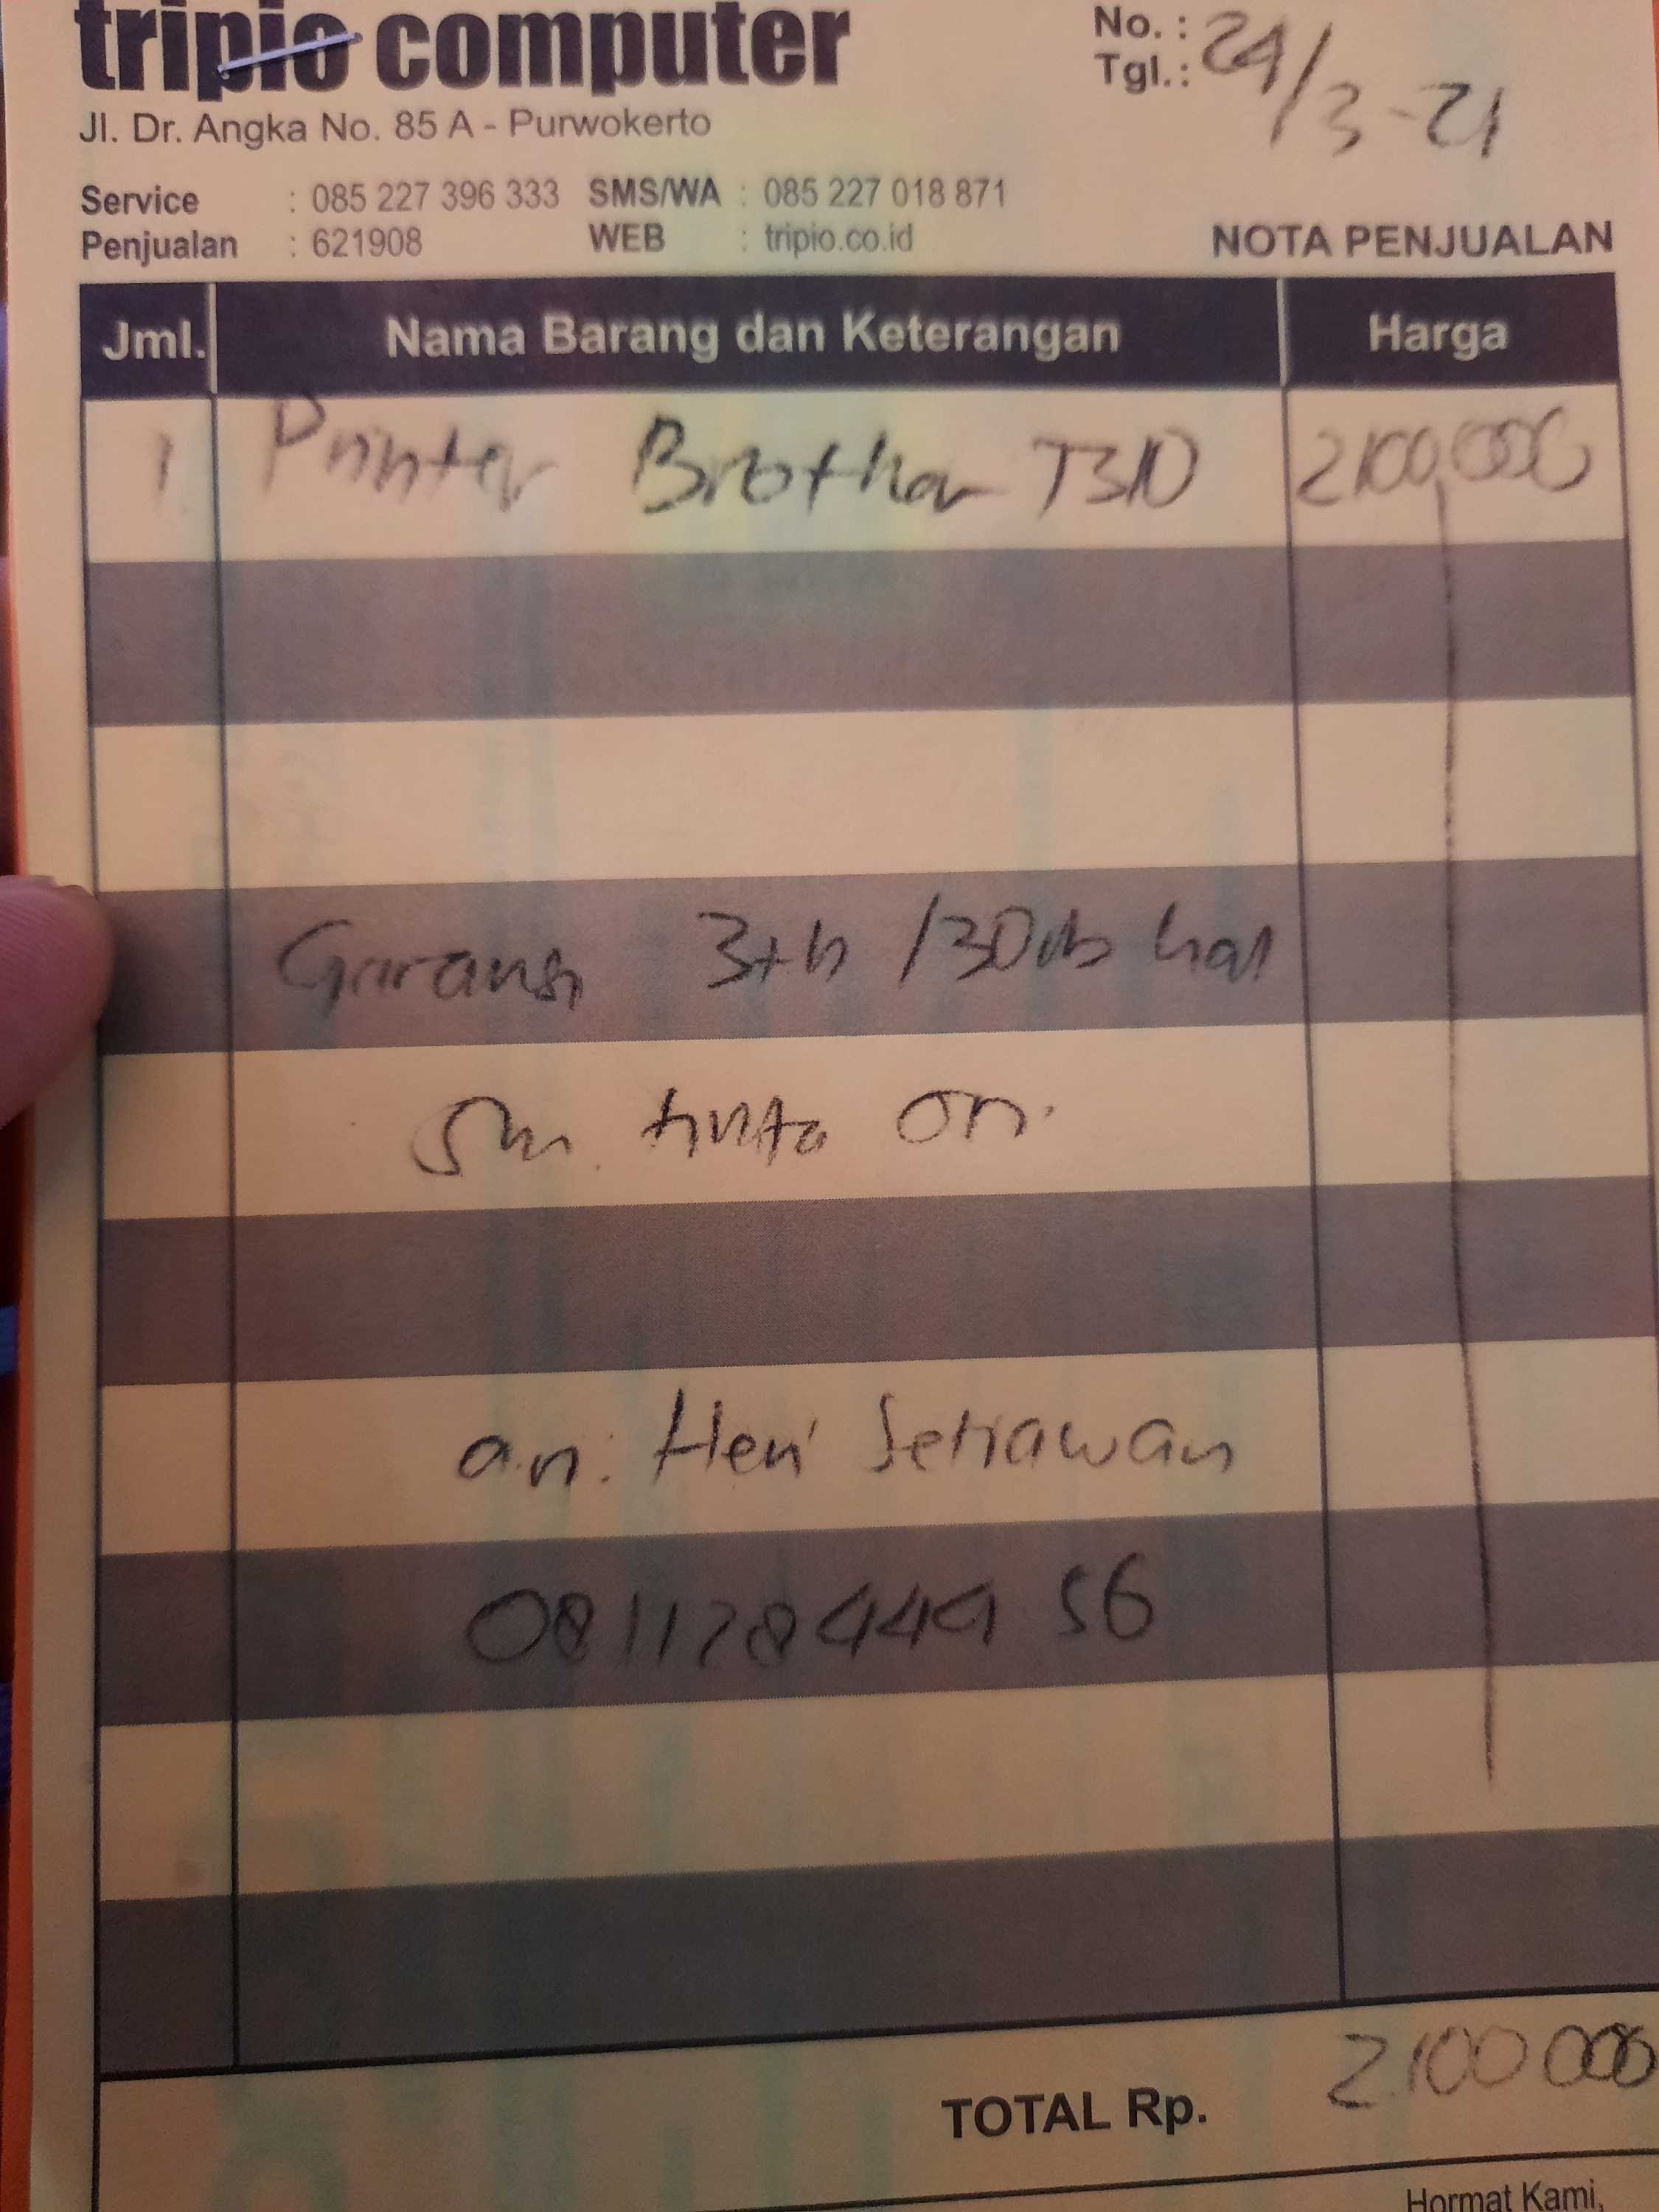 tripio computer
No. :
Tgl. : 24/3-21
Jl. Dr. Angka No. 85 A - Purwokerto
Service : 085 227 396 333 SMS/WA : 085 227 018 871
Penjualan : 621908 WEB : tripio.co.id
NOTA PENJUALAN
Jml. Nama Barang dan Keterangan Harga
1 Printer Brother T310 2100,000
Garansi 3th /30rb hal
tinta ori.
a.n: Heri Setiawan
081128444 56
TOTAL Rp. 2.100 000
Hormat Kami,